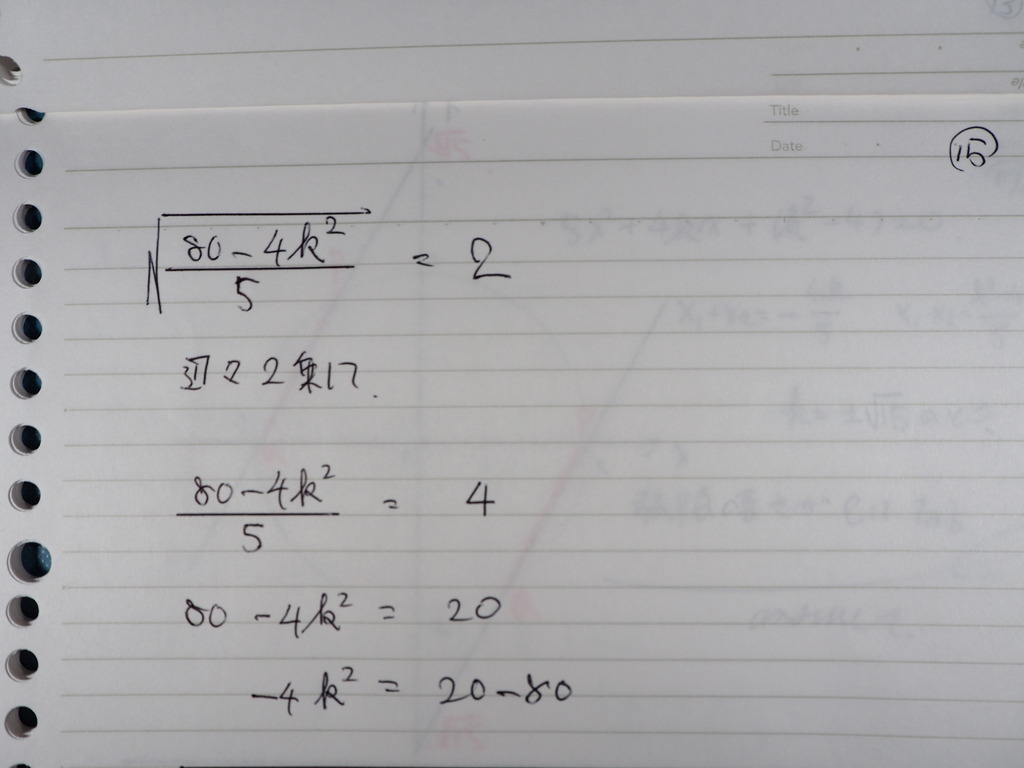 Title
Date
⑮
√((80-4k²)/5) = 2
辺々2乗して
(80-4k²)/5 = 4
80-4k² = 20
-4k² = 20-80